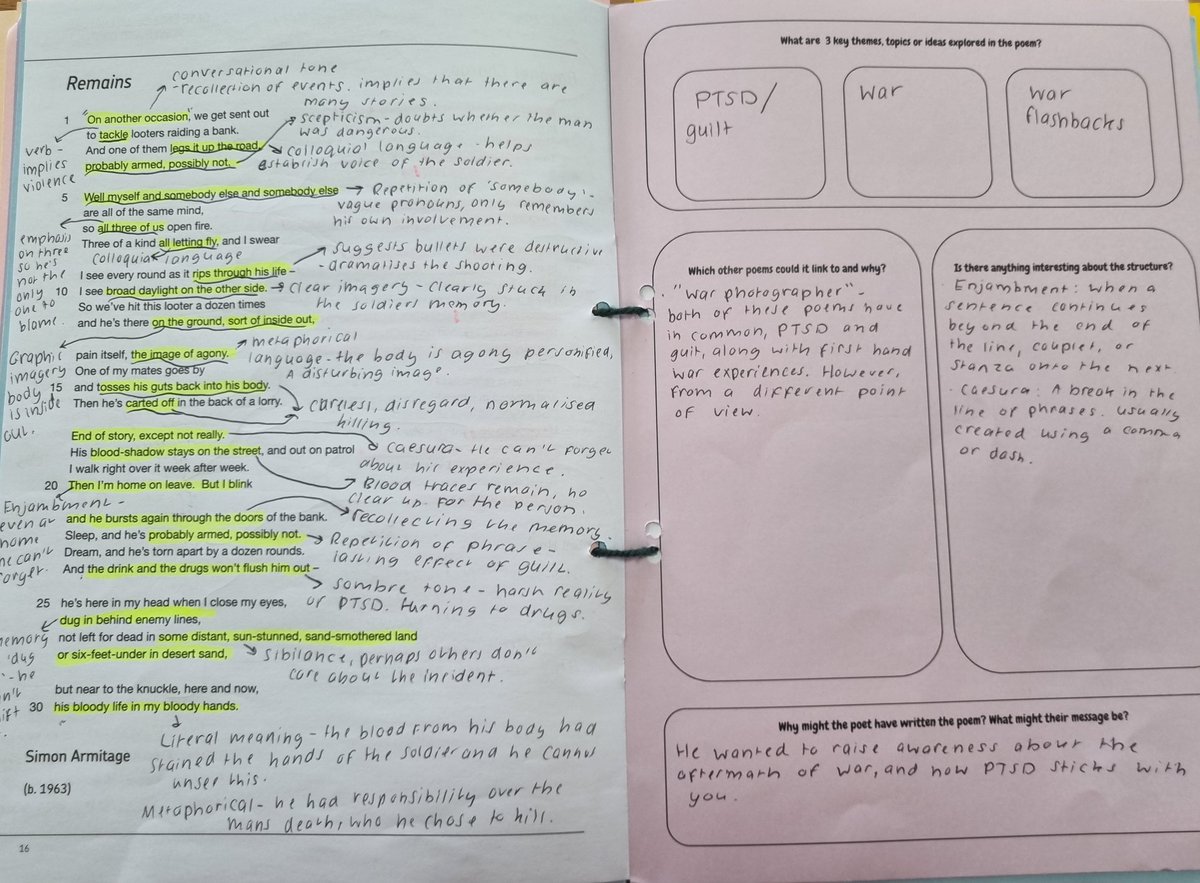 Remains
conversational tone
- recollection of events. implies that there are
many stories.
1 "On another occasion", we get sent out
to tackle looters raiding a bank.
And one of them legs it up the road,
probably armed, possibly not.
scepticism - doubts whether the man
was dangerous.
colloquial language - helps
establish voice of the soldier.
verb -
implies
violence
5 Well myself and somebody else and somebody else
are all of the same mind,
so all three of us open fire.
Three of a kind all letting fly, and I swear
Repetition of 'somebody' -
vague pronouns, only remembers
his own involvement.
emphasis
on three
so he's
not the
only
one to
blame.
colloquial language
I see every round as it rips through his life –
10 I see broad daylight on the other side.
So we've hit this looter a dozen times
and he's there on the ground, sort of inside out,
suggests bullets were destructive
- dramatises the shooting.
Clear imagery - clearly stuck in
the soldiers memory.
pain itself, the image of agony.
One of my mates goes by
15 and tosses his guts back into his body.
Then he's carted off in the back of a lorry.
metaphorical
language - the body is agony personified,
A disturbing image.
Graphic
imagery
body
is inside
out.
careless, disregard, normalised
killing.
End of story, except not really.
His blood-shadow stays on the street, and out on patrol
I walk right over it week after week.
20 Then I'm home on leave. But I blink
caesura - He can't forget
about his experience.
Blood traces remain, no
clear up for the person.
Enjambment -
even at
home
he can't
forget.
and he bursts again through the doors of the bank.
Sleep, and he's probably armed, possibly not.
Dream, and he's torn apart by a dozen rounds.
And the drink and the drugs won't flush him out –
recollecting the memory.
Repetition of phrase -
lasting effect of guilt.
sombre tone - harsh reality
of PTSD. turning to drugs.
25 he's here in my head when I close my eyes,
dug in behind enemy lines,
not left for dead in some distant, sun-stunned, sand-smothered land
or six-feet-under in desert sand,
memory
'dug
sibilance, perhaps others don't
care about the incident.
but near to the knuckle, here and now,
30 his bloody life in my bloody hands.
Literal meaning - the blood from his body had
stained the hands of the soldier and he cannot
unsee this.
Metaphorical - he had responsibility over the
mans death, who he chose to kill.
Simon Armitage
(b. 1963)
16
What are 3 key themes, topics or ideas explored in the poem?
PTSD/
guilt
War
War
flashbacks
Which other poems could it link to and why?
"War photographer" -
both of these poems have
in common, PTSD and
guilt, along with first hand
war experiences. However,
from a different point
of view.
Is there anything interesting about the structure?
· Enjambment: when a
sentence continues
beyond the end of
the line, couplet, or
stanza onto the next.
· Caesura: A break in the
line of phrases. usually
created using a comma
or dash.
Why might the poet have written the poem? What might their message be?
He wanted to raise awareness about the
aftermath of war, and how PTSD sticks with
you.